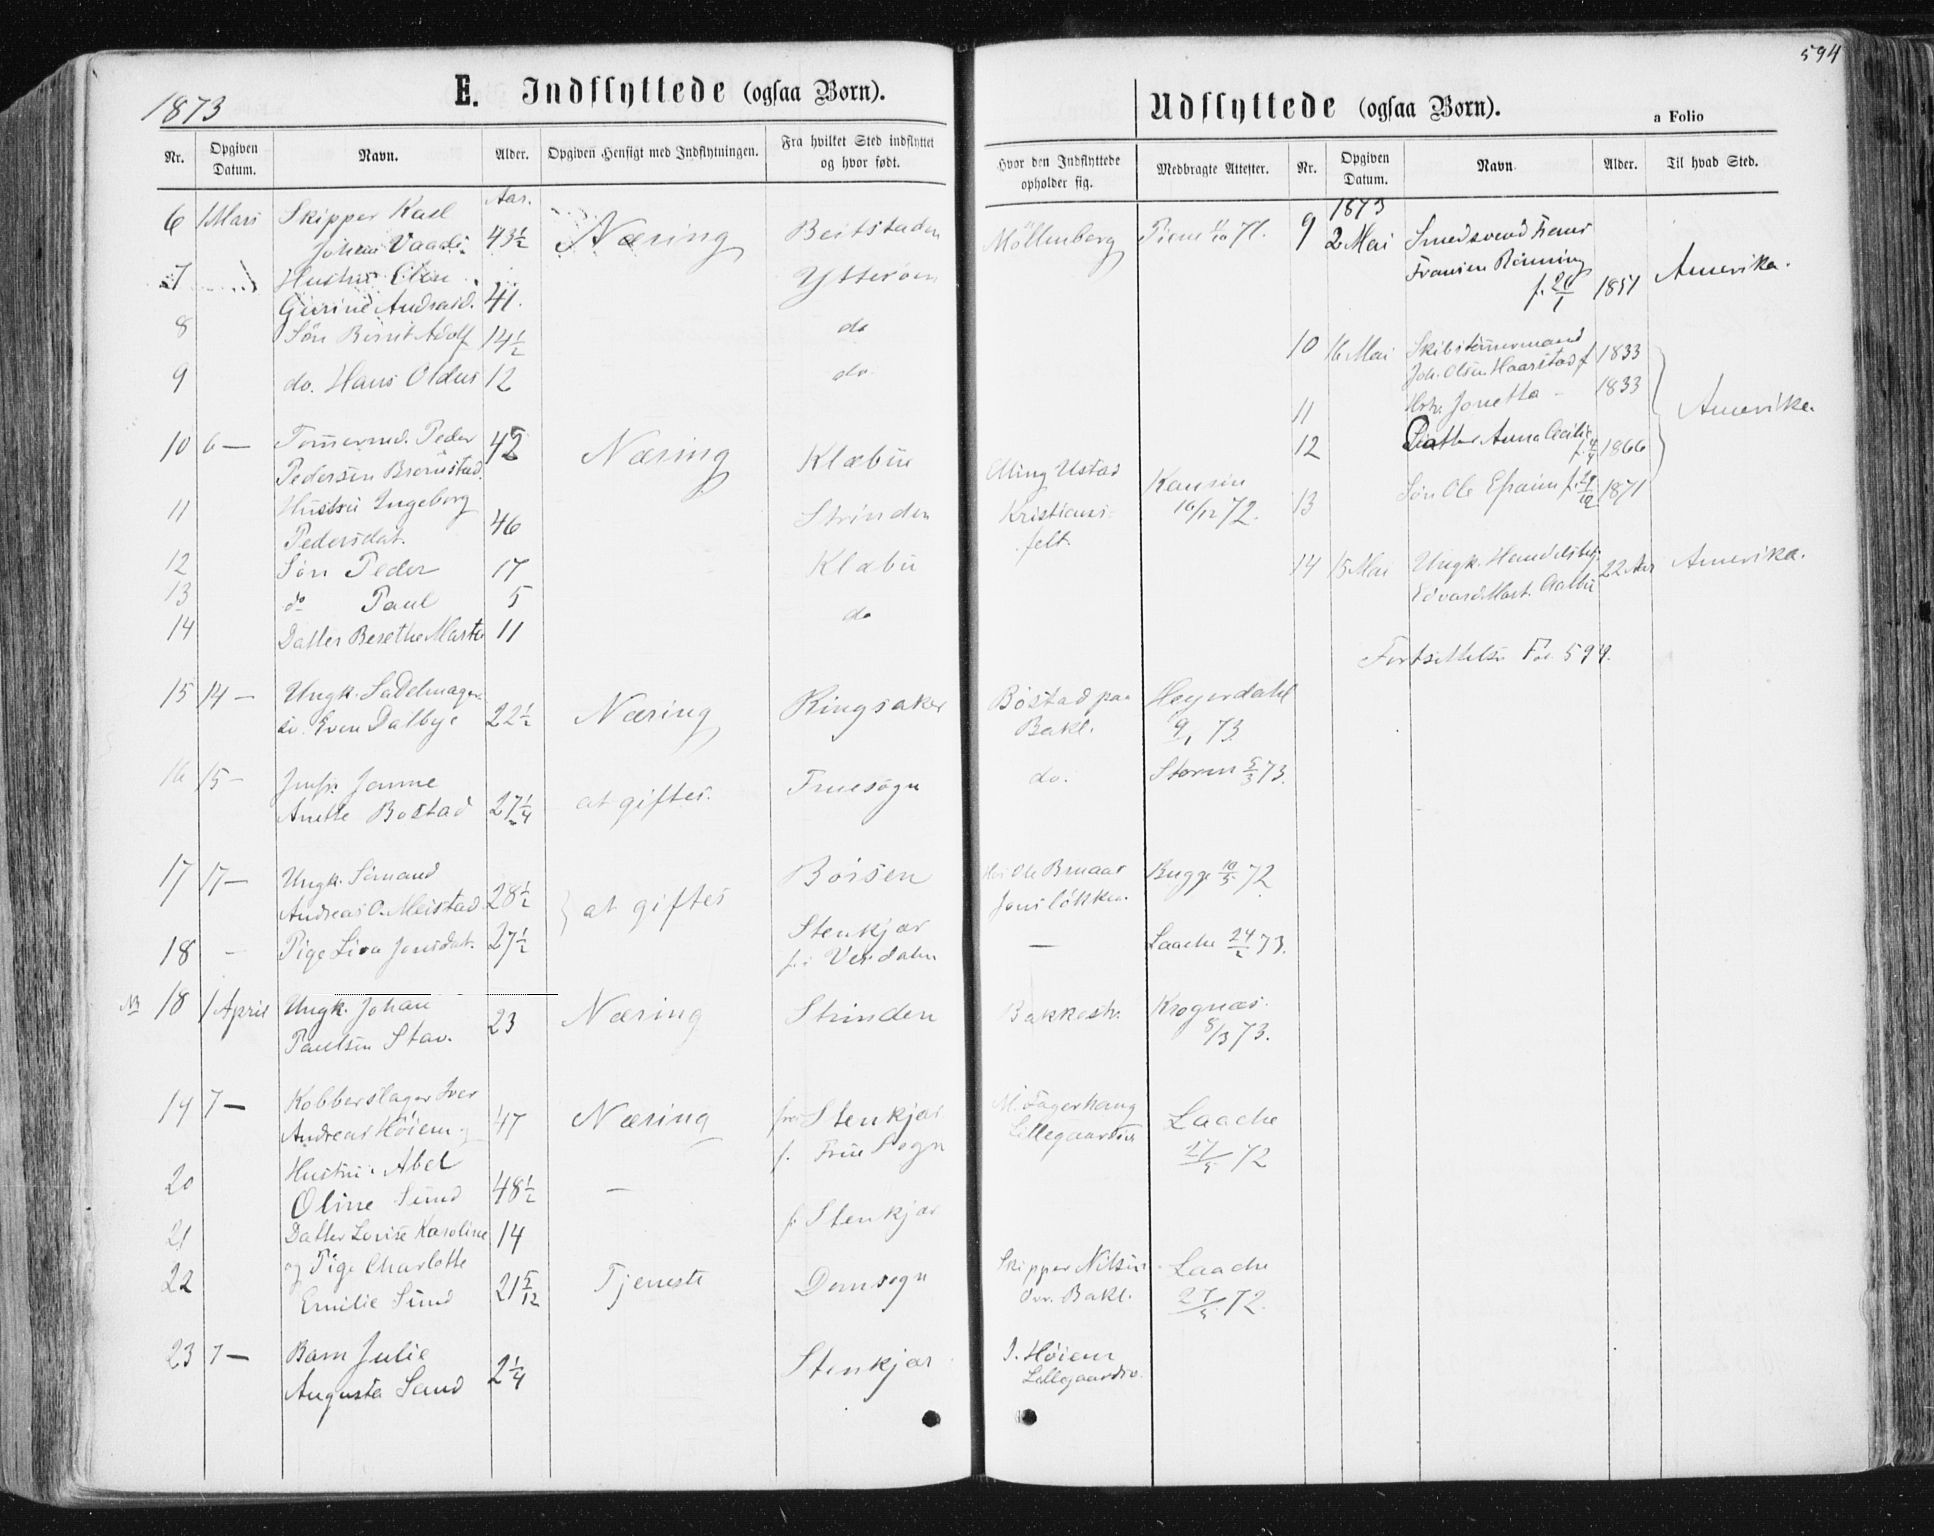 594
1873
E. Indflyttede (ogsaa Børn).
Udflyttede (ogsaa Børn).
a Folio
Nr. Opgiven Datum. Navn. Alder. Opgiven Hensigt med Indflytningen. Fra hvilket Sted indflyttet og hvor født. Hvor den Indflyttede opholder sig. Medbragte Attester.
Nr. Opgiven Datum. Navn. Alder. Til hvad Sted.
Aar.
6 1 Mars Skipper Karl 43½ Næring Beitstaden Möllenberg 71.
Johan
7 Hustru 41. Ytterøen
8 Søn Adolf 14½ do
9 do. Hans 12 do.
10 6 — Peder 42 Næring Klæbu
Pedersen
11 Hustru Ingeborg 46 Strinden Kristians- 16/12 72.
Pedersdat. felt.
12 Søn Peder 17 Klæbu
13 do Paul 5
14 Datter Berethe Marta 11 do
15 14 — Ungk. Sadelmager- 22½ Næring Ringsaker Bøstad paa Heyerdahl
sv. Even Dalbye Bakl. 9/1 73
16 15 — Jmfr. Janne 27¼ at giftes. Fruesogn do. Storm 5/3 73.
Anette Bostad
17 17 — Ungk. Sömand 28½ at giftes Börsen Bugge 10/5 72
Andreas O. Meistad
18 — Pige Jonsdat. 27½ Stenkjær — Laache 24/2 73.
f. i Verdalen
18 1 April Ungk. Johan 23 Næring Strinden Bakkestr. Krognæs
Paulsen Stav. 8/3 73.
19 7 — Kobberslager Iver 47 Næring fra Stenkjær Laache
Andreas Höiem f. Frue Sogn 27/5 72
20 Hustru Abel 48½ — f. Stenkjær
Oline Sund
21 Datter Lovise Karoline 14
22 og Pige Charlotte 21 5/12 Tjeneste Domsogn Skipper Nilsen Laache
Emilie Sund Bakl. 27/5 72.
23 7 — Barn Julie 2¼ Stenkjær I. Höiem
Augusta Sund
1873
9 2 Mai Smedsvend
Fransen Rönning Amerika.
1851
10 16 Mai Skibstömmermand 1833
Joh. Olsen Haarstad f
11 Jonetta — 1833 Amerika.
12 Datter Anna Cecilie 1866
13 Søn Ole Efraim 1871
14 15 Mai Ungk. 22 Aar Amerika.
Edvard Mart.
Fortsættelse Fol. 594.